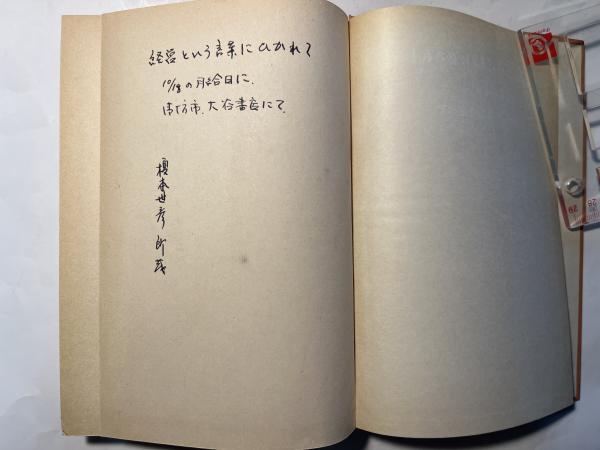 経営という言葉にひかれて
10/13の月給日に、
大谷書店にて。
榎本世彦